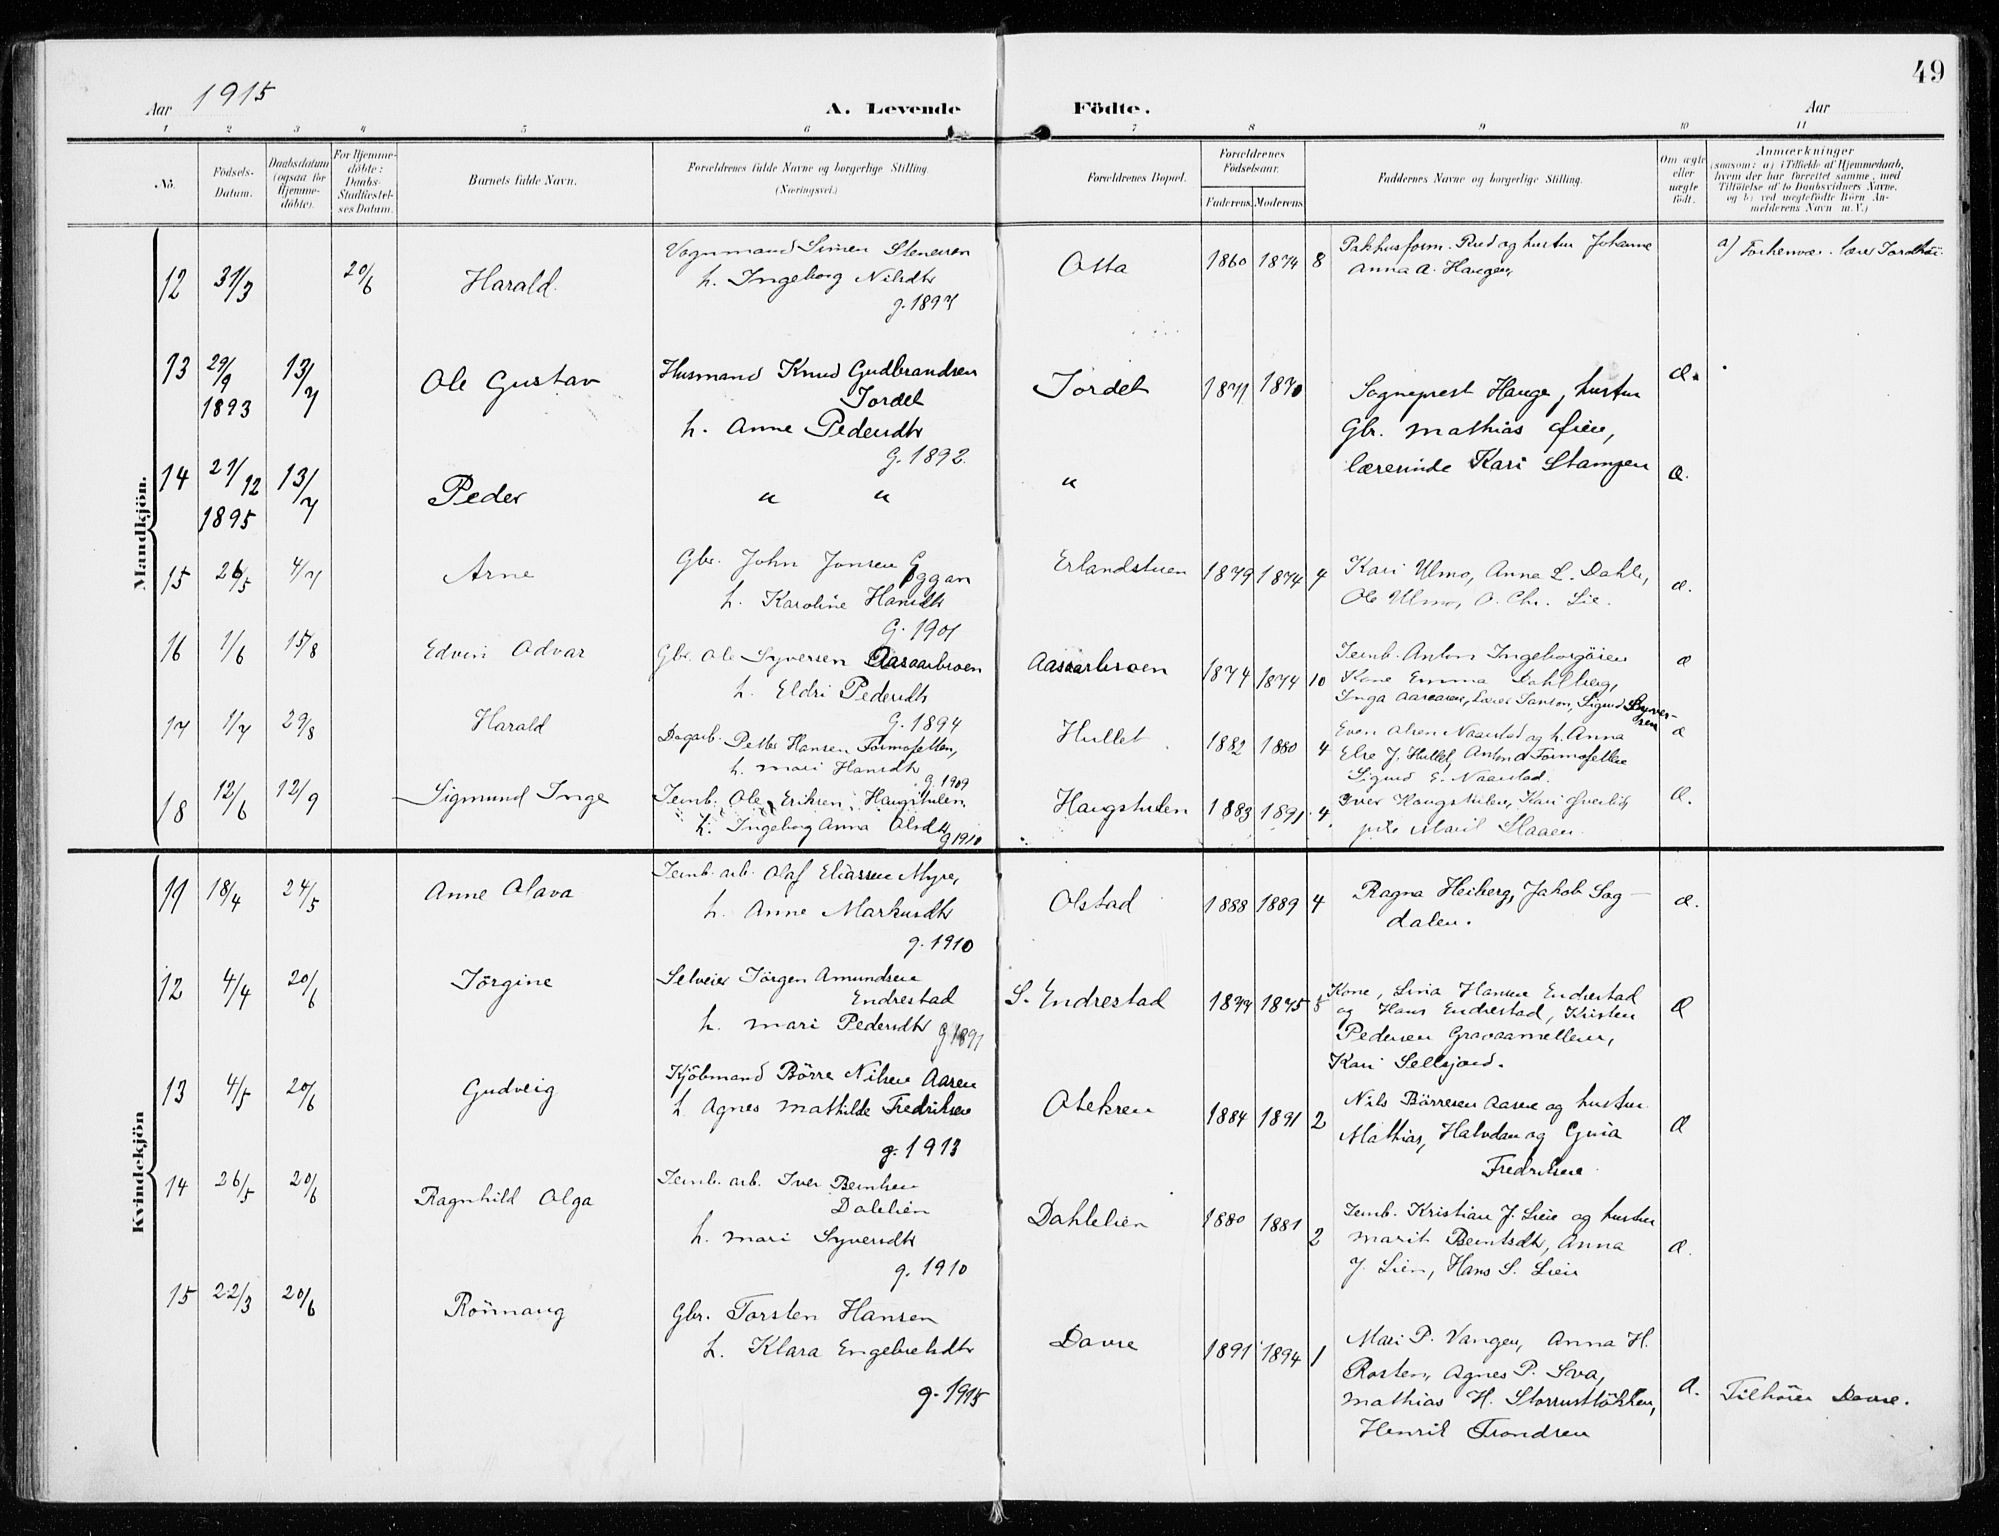 49
Aar 1915
A. Levende Födte.
Aar
1 2 3 4 5 6 7 8 9 10 11
No. Födsels-Datum. Daabsdatum (ogsaa for Hjemmedöbte). For Hjemmedöbte: Daabs-Stadfæstelses Datum. Barnets fulde Navn. Forældrenes fulde Navne og borgerlige Stilling. (Næringsvei.) Forældrenes Bopæl. Forældrenes Födselsaar. Faderens. Moderens. Faddernes Navne og borgerlige Stilling. Om ægte eller uægte födt. Anmærkninger (saasom: a) i Tilfælde af Hjemmedaab, hvem der har forrettet samme, med Tilföielse af to Daabsvidners Navne, og b) ved uægtefödte Börn Anmelderens Navn m. V.)
Mandkjön.
12 31/3 20/6 Harald. Vognmand Simen Stenersen Otta 1860 1874 8 Pakhusform. Rud og hustru Johanne a)
h. Ingeborg Nilsdtr Anna A. Haugen,
g. 1897
13 29/9 1893 13/7 Ole Gustav Husmand Knud Gudbrandsen Jordet 1871 1870 Sogneprest Hauge, hustru Æ.
Jordet
h. Anne Pedersdtr Gbr. Mathias Øien,
g. 1892.
14 21/12 1895 13/7 Peder " " " lærerinde Kari Stampen Æ.
15 26/5 4/7 Arne Gbr. John Jonsen Eggan Erlandstuen 1879 1874 4 Kari Ulmo, Anna L. Dahle, Æ.
h. Karoline Hansdtr Ole Ulmo, O. Chr. Lie.
g. 1901
16 1/6 15/8 Edvin Advar Gbr. Ole Syversen Aasaarbroen Aasaarbroen 1874 1874 10 Jernb. Anton Ingeborgöien Æ
h. Eldri Pedersdtr Kone Emma Dahlberg,
g. 1894 Inga Aasaaren, Lærer Sanson, Sigurd Syversen
17 1/7 29/8 Harald Dagarb. Petter Hansen Formofetten, Hullet 1882 1880 4 Even Olsen Naarstad og h. Anna Æ
h. Mari Hansdtr Else J. Hullet, Anton Formofetten
g 1909 Sigurd E. Naarstad.
18 12/6 12/9 Sigmund Inge Jernb. Ole Eriksen Haugstulen Haugstulen 1883 1891 4 Iver Haugstulen, Kari Øverlid, Æ.
h. Ingeborg Anna Olsdtr g 1910 pike Marit Slaaen.
Kvindekjön
11 18/4 24/5 Anne Olava Jernb. arb. Olaf Eliassen Myre, Olstad 1888 1889 4 Ragna Heiberg, Jakob Sag- Æ.
h. Anne Markusdtr dalen.
g. 1910
12 4/4 20/6 Jörgine Selveier Jörgen Amundsen S. Endrestad 1875 Kone, Lina Hansen Endrestad Æ
Endrestad og Hans Endrestad, Kristen
h. Mari Pedersdtr Pedersen Graaamellem,
Kari Selsjord.
13 4/5 20/6 Gudveig Kjöbmand Börre Nilsen Aasen Olekren 1884 1891 2 Nils Börresen Aasen og hustru Æ
h. Agnes Mathilde Fredriksen Mathias, Halvdan og Gina
g. 1913 Fredriksen.
14 26/5 20/6 Ragnhild Olga Jernb. arb. Iver Berntsen Dahlelien 1880 1881 2 Jernb. Kristian J. Lien og hustru Æ.
Dahlelien
h. Mari Syversdtr Marit Berntsdtr, Anna
g. 1910 J. Lien, Hans S. Lien
15 22/3 20/6 Rönnaug Gbr. Torsten Hansen Dovre 1891 1894 1 Mari P. Vangen, Anna H.
h. Klara Engebretsdtr Rosten, Agnes P. Sva,
g. 1915 Mathias H. Storrustlökken, Æ. Tilhörer Dovre.
Henrik Trondsen